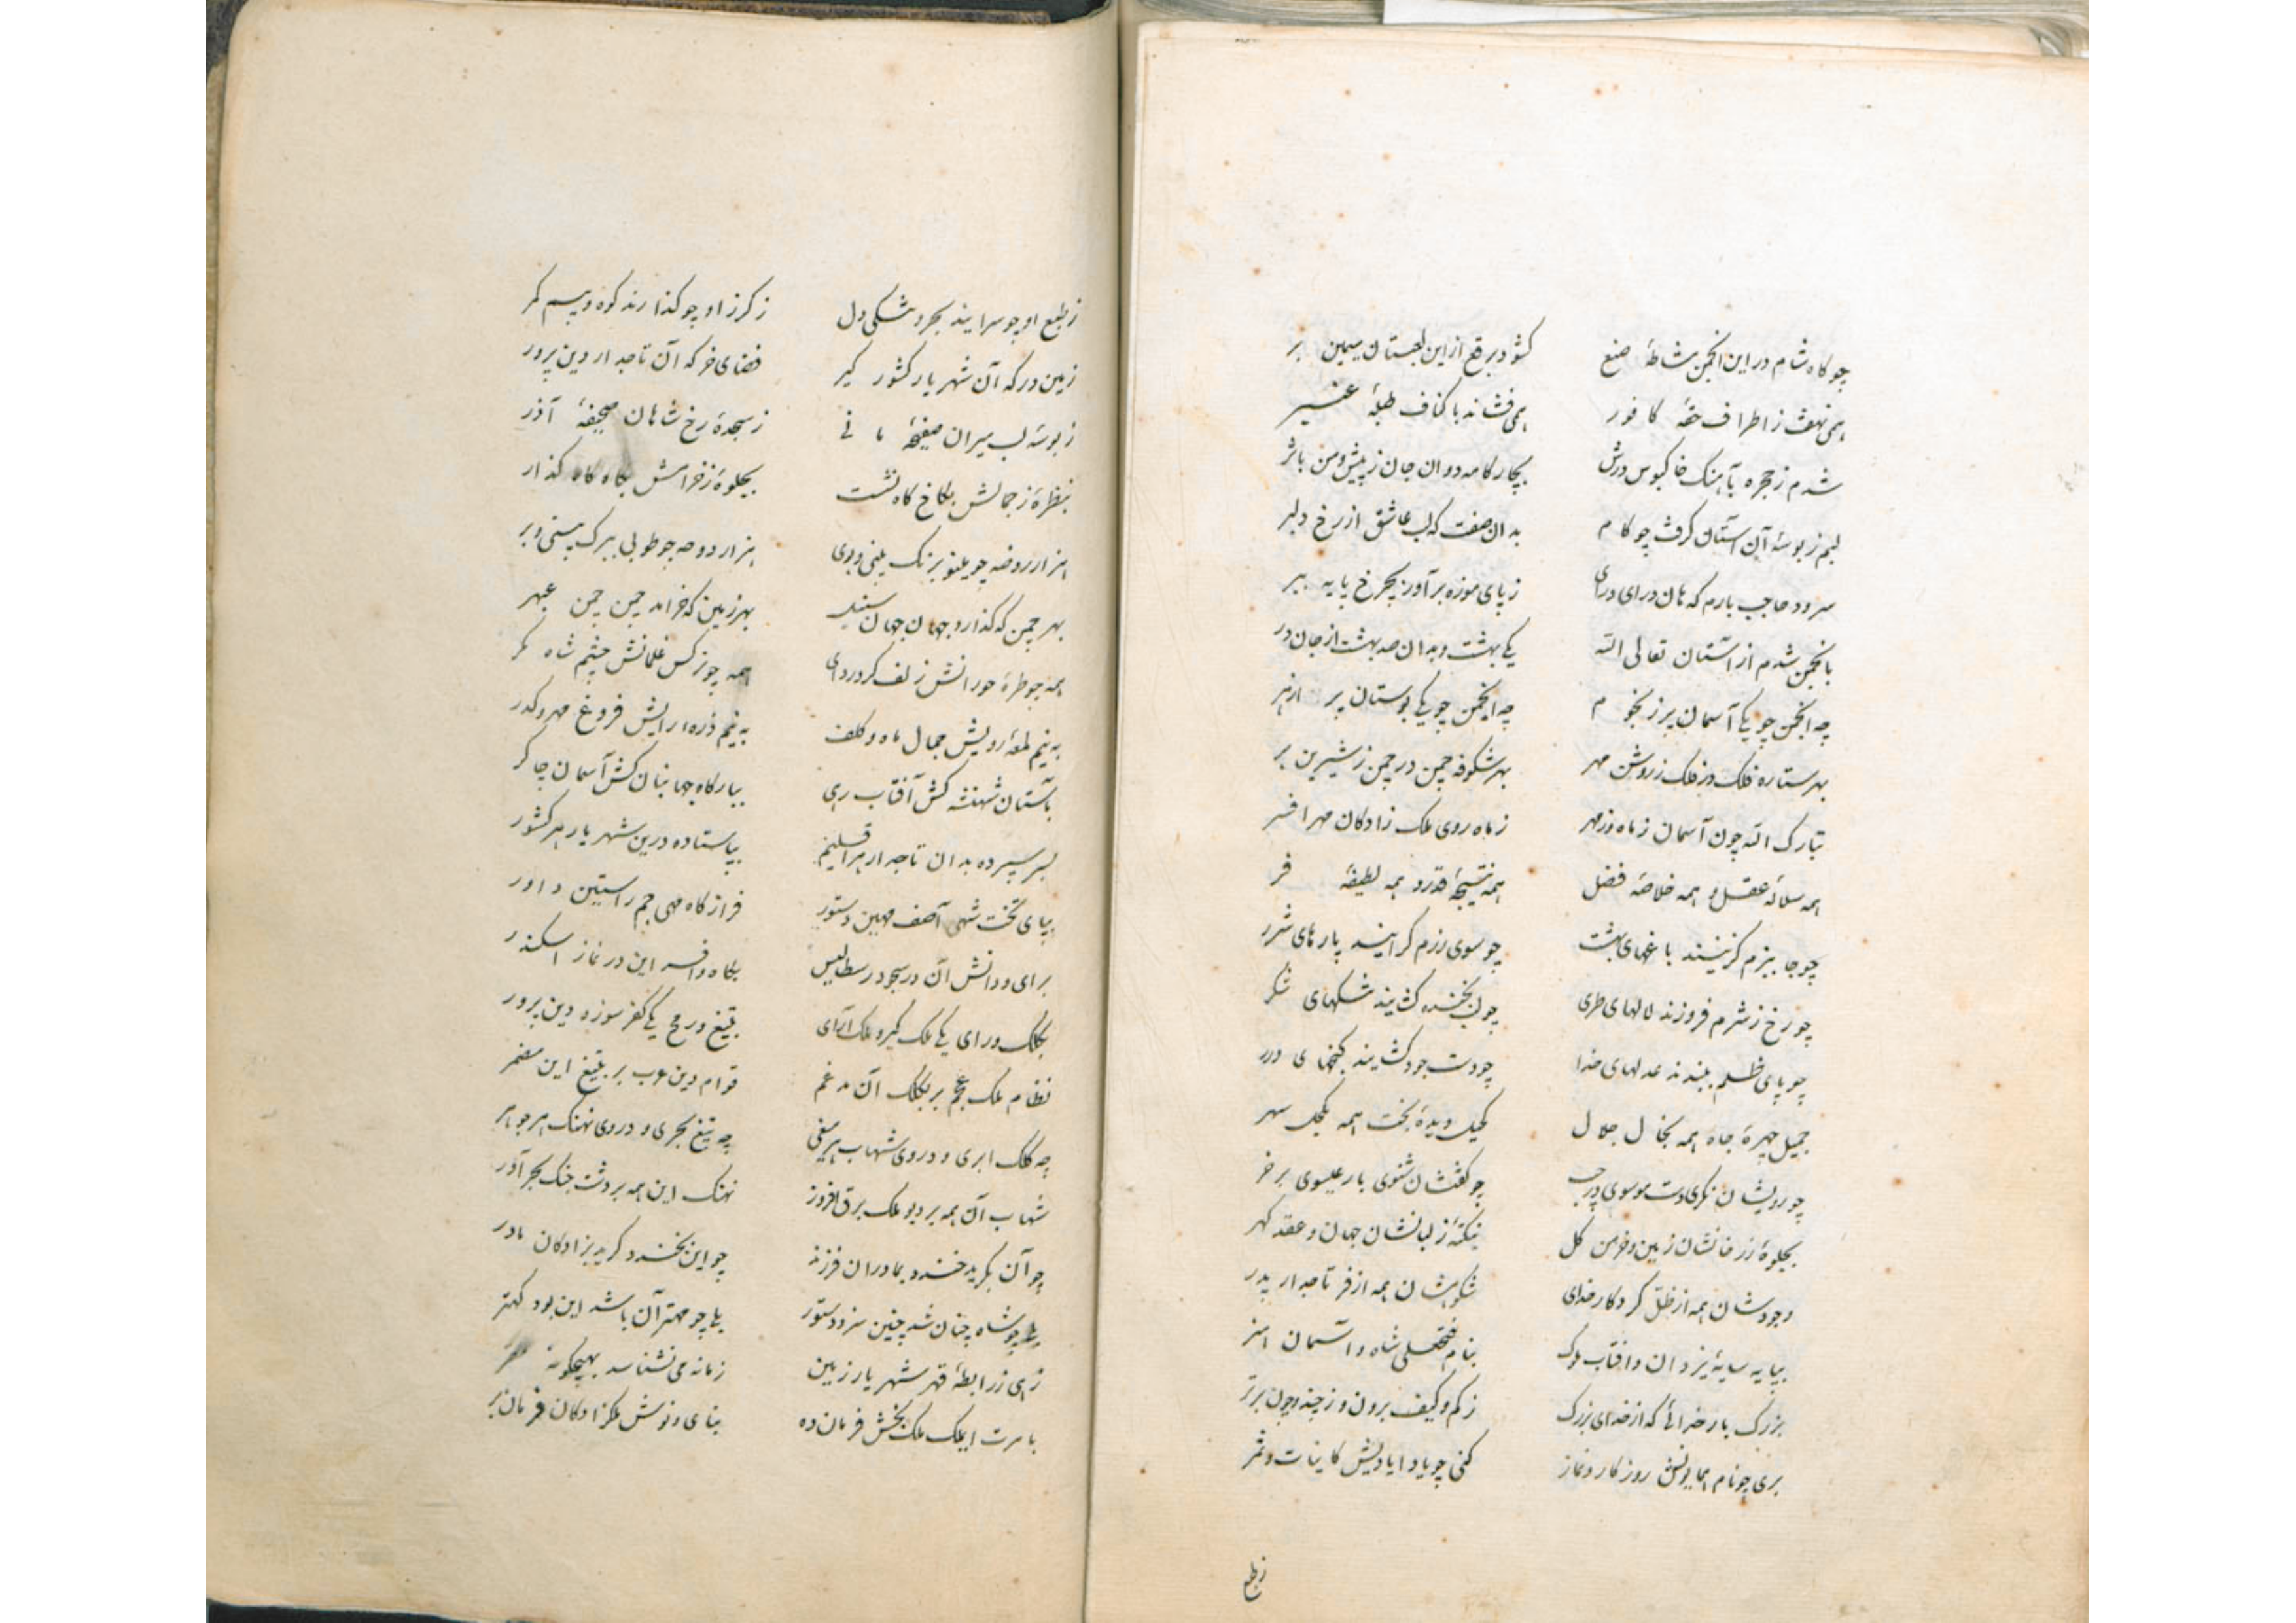 چو کاه شام در این انجمن مشاطهٔ صنع کشود برقع از این لعبتان سیمین بر
همی نهفت ز اطراف حقهٔ کافور همی فشاند باکناف طبلهٔ عنبر
شدم ز حجره بآهنک خاکبوس درش بچار کامه دوان جان ز پیش و من باثر
لبم ز بوسهٔ آن آستان کرفت چو کام بدان صفت که لب عاشق از رخ دلبر
سرود حاجب بارم که هان درای درای ز پای موزه برآور بچرخ پایه ببر
بانجمن شدم از آستان تعالی الله یکی بهشت و بدان صد بهشت از جان در
چه انجمن چو یکی آسمان پر ز نجوم چه انجمن چو یکی بوستان پر ازهر
بهر ستاره فلک در فلک ز روشن مهر بهر شکوفه چمن در چمن ز شیرین بر
تبارک الله چون آسمان ز ماه و ز مهر ز ماه روی ملک زادکان مهر افسر
همه سلالهٔ عقل و همه خلاصهٔ فضل همه نتیجهٔ قدر و همه لطیفهٔ فر
چو جا ببزم کزینند باغهای بهشت چو سوی رزم کرایند پارهای شرر
چو رخ ز شرم فروزند لالهای طری چو لب بخنده کشایند تنکهای شکر
چو پای ظلم ببندند عدلهای خدا چو دست جود کشایند کنجهای درر
جمیل چهرهٔ جاه همه بخال جلال کحیل دیدهٔ بخت همه بکحل سهر
چو رویشان نکری دست موسوی در جیب چو کفتشان شنوی بار عیسوی بر خر
بجلوهٔ ز رخانشان زمین و خرمن کل بنکتهٔ ز لبانشان جهان و عقد کهر
وجودشان همه از ظل کردکار خدای شکوهشان همه از فر تاجدار پدر
بپایه سایهٔ یزدان و آفتاب ملوک بنام فتحعلی شاه و آسمان هنر
بزرک بار خدائی که از خدای بزرک ز کم و کیف برون و ز چند و چون برتر
بری چو نام همایونش روزکار و نماز کنی چو یاد ایادیش کاینات و ثمر
ز طبع
ز طبع او چو سرایند بحر و تنکی دل ز کرز او چو کذارند کوه و بیم کمر
زمین درکه آن شهریار کشور کیر فضای خرکه آن تاجدار دین پرور
ز بوسهٔ لب میران صفحهٔ مانی ز سجدهٔ رخ شاهان صحیفهٔ آذر
بنظرهٔ ز جمالش بکاخ کاه نشست بجلوهٔ ز خرامش بکاه کاه کذار
هزار روضه چو مینو برنک بینی و بوی هزار دوحه چو طوبی ببرک بینی و بر
بهر چمن که کذارد جهان جهان سنبل بهر زمین که خرامد چمن چمن عبهر
همه چو طرهٔ حورانش زلف کرد ردای همه چو نرکس غلمانش چشم شاه نکر
به نیم لمعهٔ رویش جمال ماه و کلف به نیم ذره رایش فروغ مهر و کدر
بآستان شهنشه کش آفتاب رهی ببارکاه جهانبان کش آسمان چاکر
بسر سپرده بدان تاجدار هر اقلیم بپا ستاده درین شهریار هر کشور
بپای تخت شهی آصف مهین دستور فراز کاه مهی جم راستین داور
برای و دانش آن در سجود رسطالیس بکاه و افسر این در نماز اسکندر
بکلک و رای یکی ملک کیر و ملک آرای بتیغ و رمح یکی کفر سوز و دین پرور
نظام ملک عجم بر بکلک آن مدغم قوام دین عرب بر بتیغ این مضمر
چه کلک ابری و در وی شهاب هر سفی چه تیغ بحری و در وی نهنک هر جوهر
شهاب آن همه بر دیو ملک برق افروز نهنک این همه بر دشت جنک بحر آذر
چو آن بکرید خندد بمادران فرزند چو این بخندد کرید بزادکان مادر
بلی چو شاه چنان شد چنین سزد دستور بلی چو مهتر آن باشد این بود کهتر
زهی ز رابطهٔ قهر شهریار زمین زمانه می نشناسد بهیچکونه
بامرت ایملک ملک بخش فرمان ده بنای و نوش ملکزادکان فرمان بر